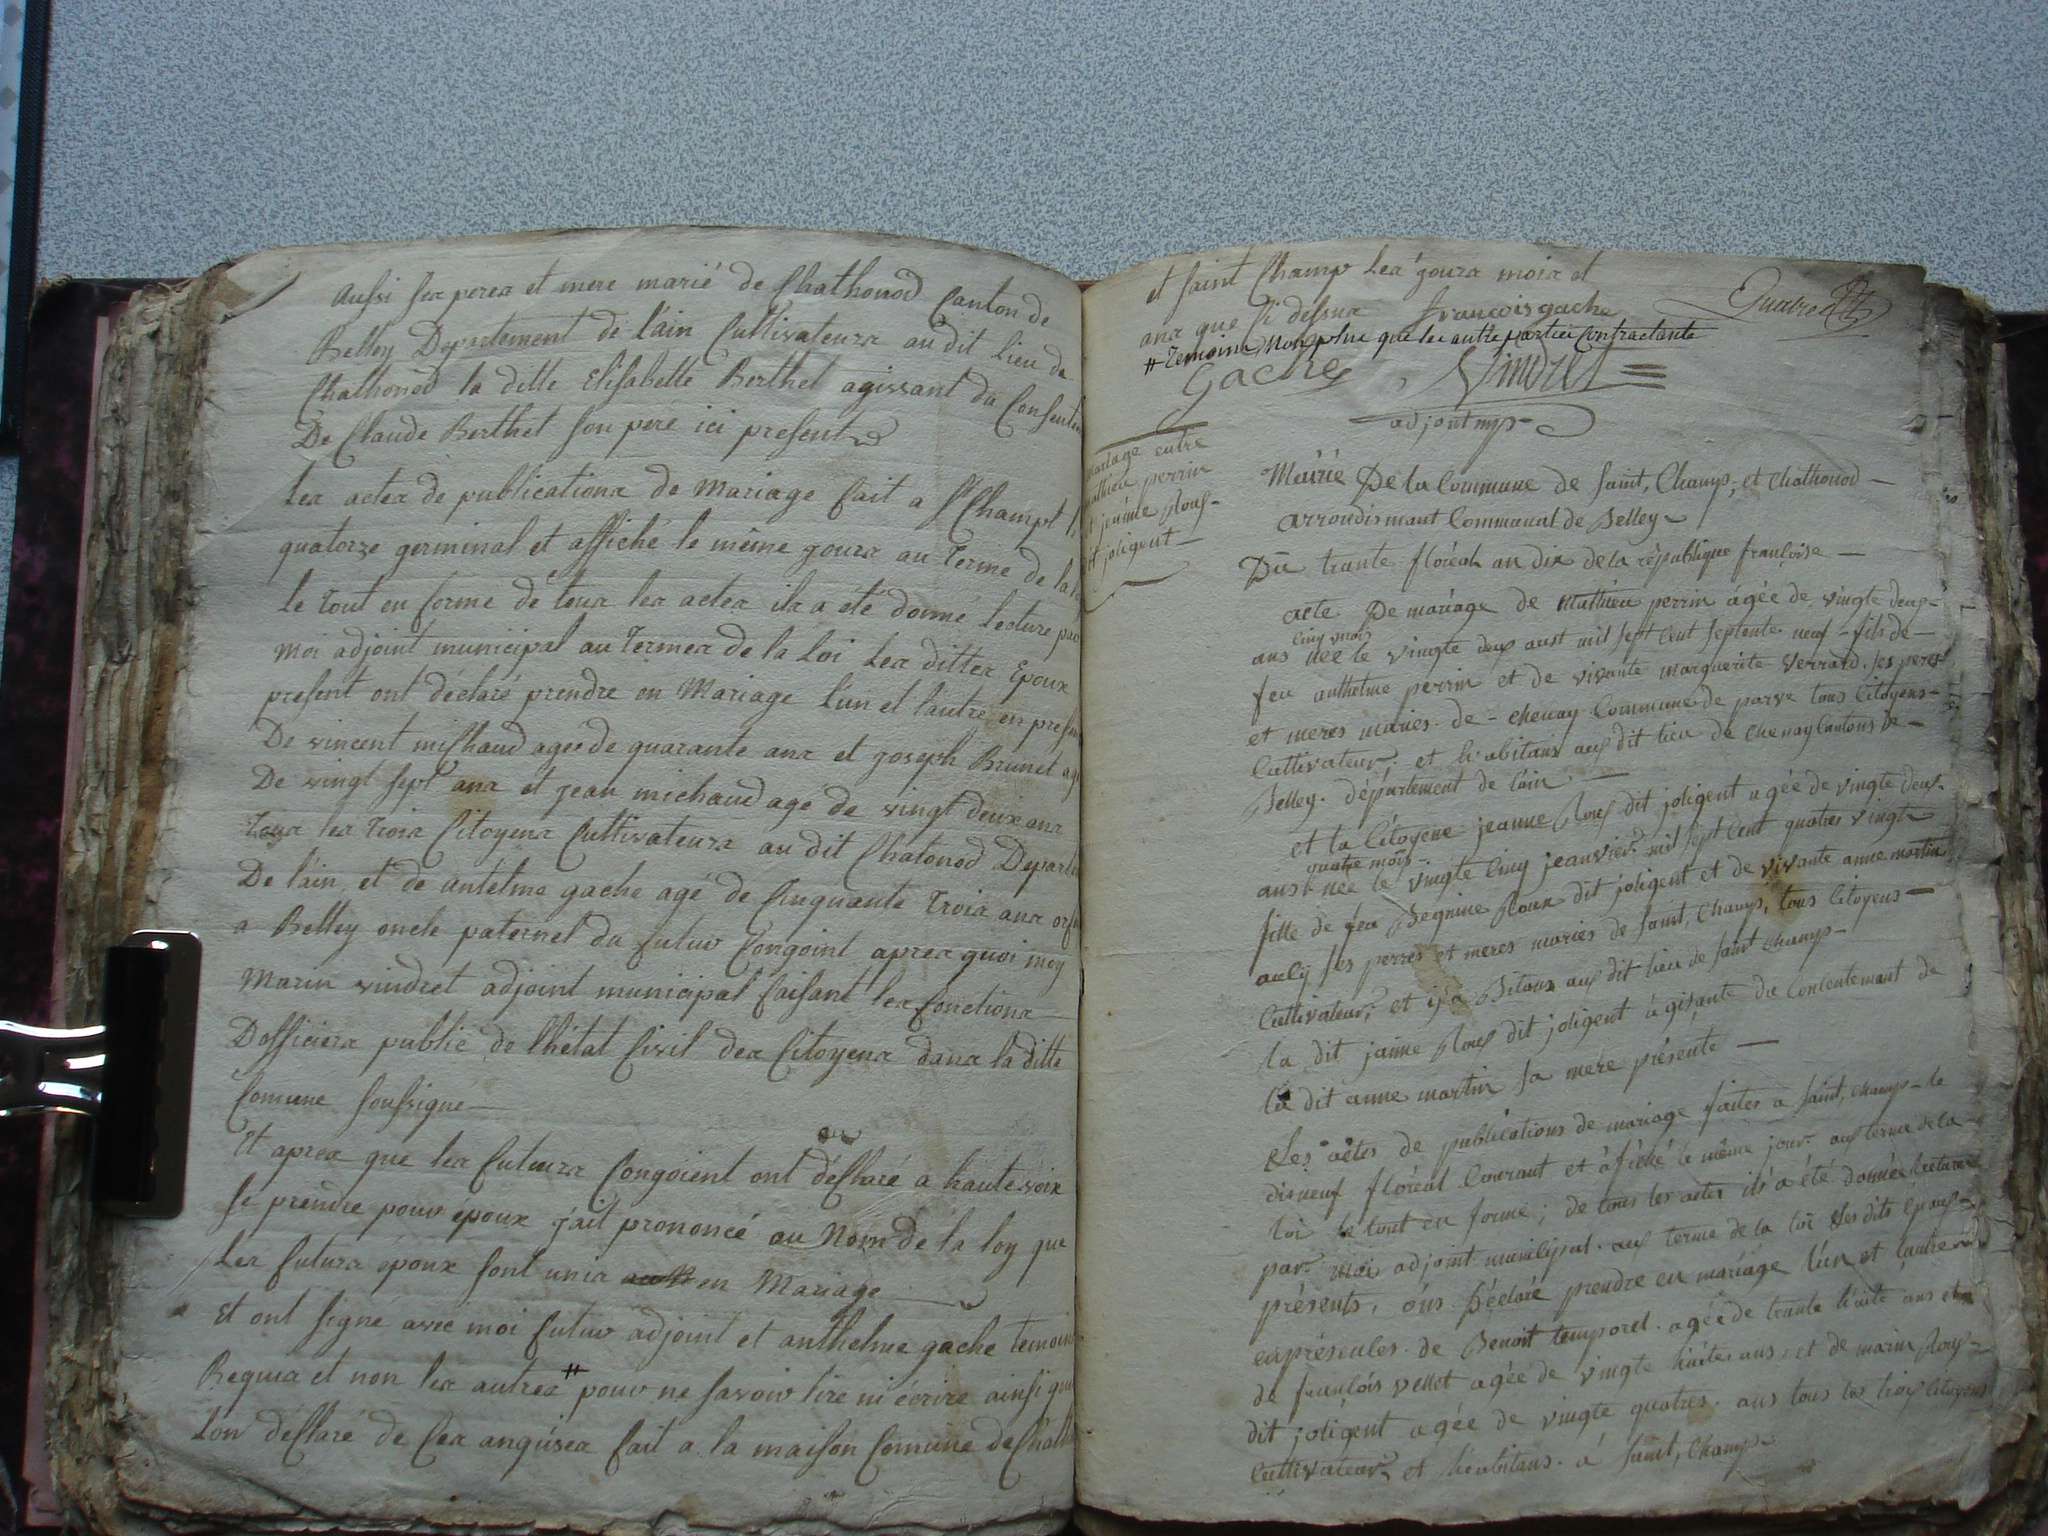 aussi ses peres et mere marié de Chathonod Canton de
Belley Departement de l'ain Cultivateurs au dit lieu de
Chathonod la delle Elisabette Berthet agissant du Consente
De Claude Berthet son pere ici present
Les actes de publications de Mariage fait a St Champt
quatorze germinal et affiché le même jours au Terme de la
le Tout en forme de tous les actes ils a été donné lecture par
moi adjoint municipal au Termes de la Loi Les dittes Epoux
present ont déclaré prendre en Mariage l'un et l'autre en presen
De vincent michaud agée de quarante ans et joseph Brunet ag
De vingt sept ans et jean michaud agé de vingt deux ans
Tous les Trois Citoyens Cultivateurs au dit Chatonod Depart
De l'ain et de antelme gache agé de Cinquante Trois ans
a Belley oncle paternel du futur Congoint apres quoi moy
Marin vindret adjoint municipal faisant les fonctions
D'officiers public de lhétat Civil des Citoyens dans la ditte
Comune soussigné
Et apres que les futeurs Congoient ont déclaré a haute voix
se prendre pour epoux j'ait prononcé au Nom de la loy que
Les futurs époux sont unis en Mariage
Et ont signé avec moi futur adjoint et anthelme gache temoins
Requis et non les autres # pour ne savoir lire ni écrire ainsi que
Lon déclaré de Ces anquises fait a la maison Comune de Chath
et saint Champ les jours mois et
ans que Ci dessus françois gache
# Temoins, Non plus que les autre parties Contractante
Gache, Vindret
adjoint mp
mariage entre
mathieu perrin
et jeanne Roux
dit joligent
Mairie De la Commune de saint, Champ, et Chathonod
arrondismant Communal de Belley
Du trante floréal an dix de la république françoise
acte De mariage de Mathieu perrin agée de vingte deux
cinq mois
ans née le vingte deux aust mil sept cent septente neuf fils de
feu anthelme perrin et de vivante marguerite verrard ses peres
et meres maries de chenay Commune de parve tous Citoyens
Cultivateur et habitans aux dit lieu de chenay Cantons de
Belley département de l'ain
et la Citoyene jeanne Roux dit joligent agée de vingte deux
quatre mois
ans née le vingte cinq jeanvier mil sept cent quatres vingt
fille de feu Roux dit joligent et de vivante anne martin
ausy ses perres et meres maries de saint, Champ, tous Citoyens
Cultivateur, et aux dit lieu de saint Champ
la dit jainne Roux dit joligent agisante du Consentemant de
la dit anne martin sa mere présente
Les actes de publications de mariage faites a saint, Champ le
disneuf floréal Courant et afiché le même jour aux terme de la
loi le tout en forme; de tous les actes ils a été donnée lecture
par moi adjoint municipal aux terme de la loi les dits époux
présents, ons déclaré prendre en mariage l'un et l'autre
enprésences de Benoit temporel agée de trante huite ans et
de françois vellet agée de vingte huite ans et de marin Roux
dit joligent agée de vingte quatres ans tous les trois Citoyens
Cultivateur et habitans a saint, Champ